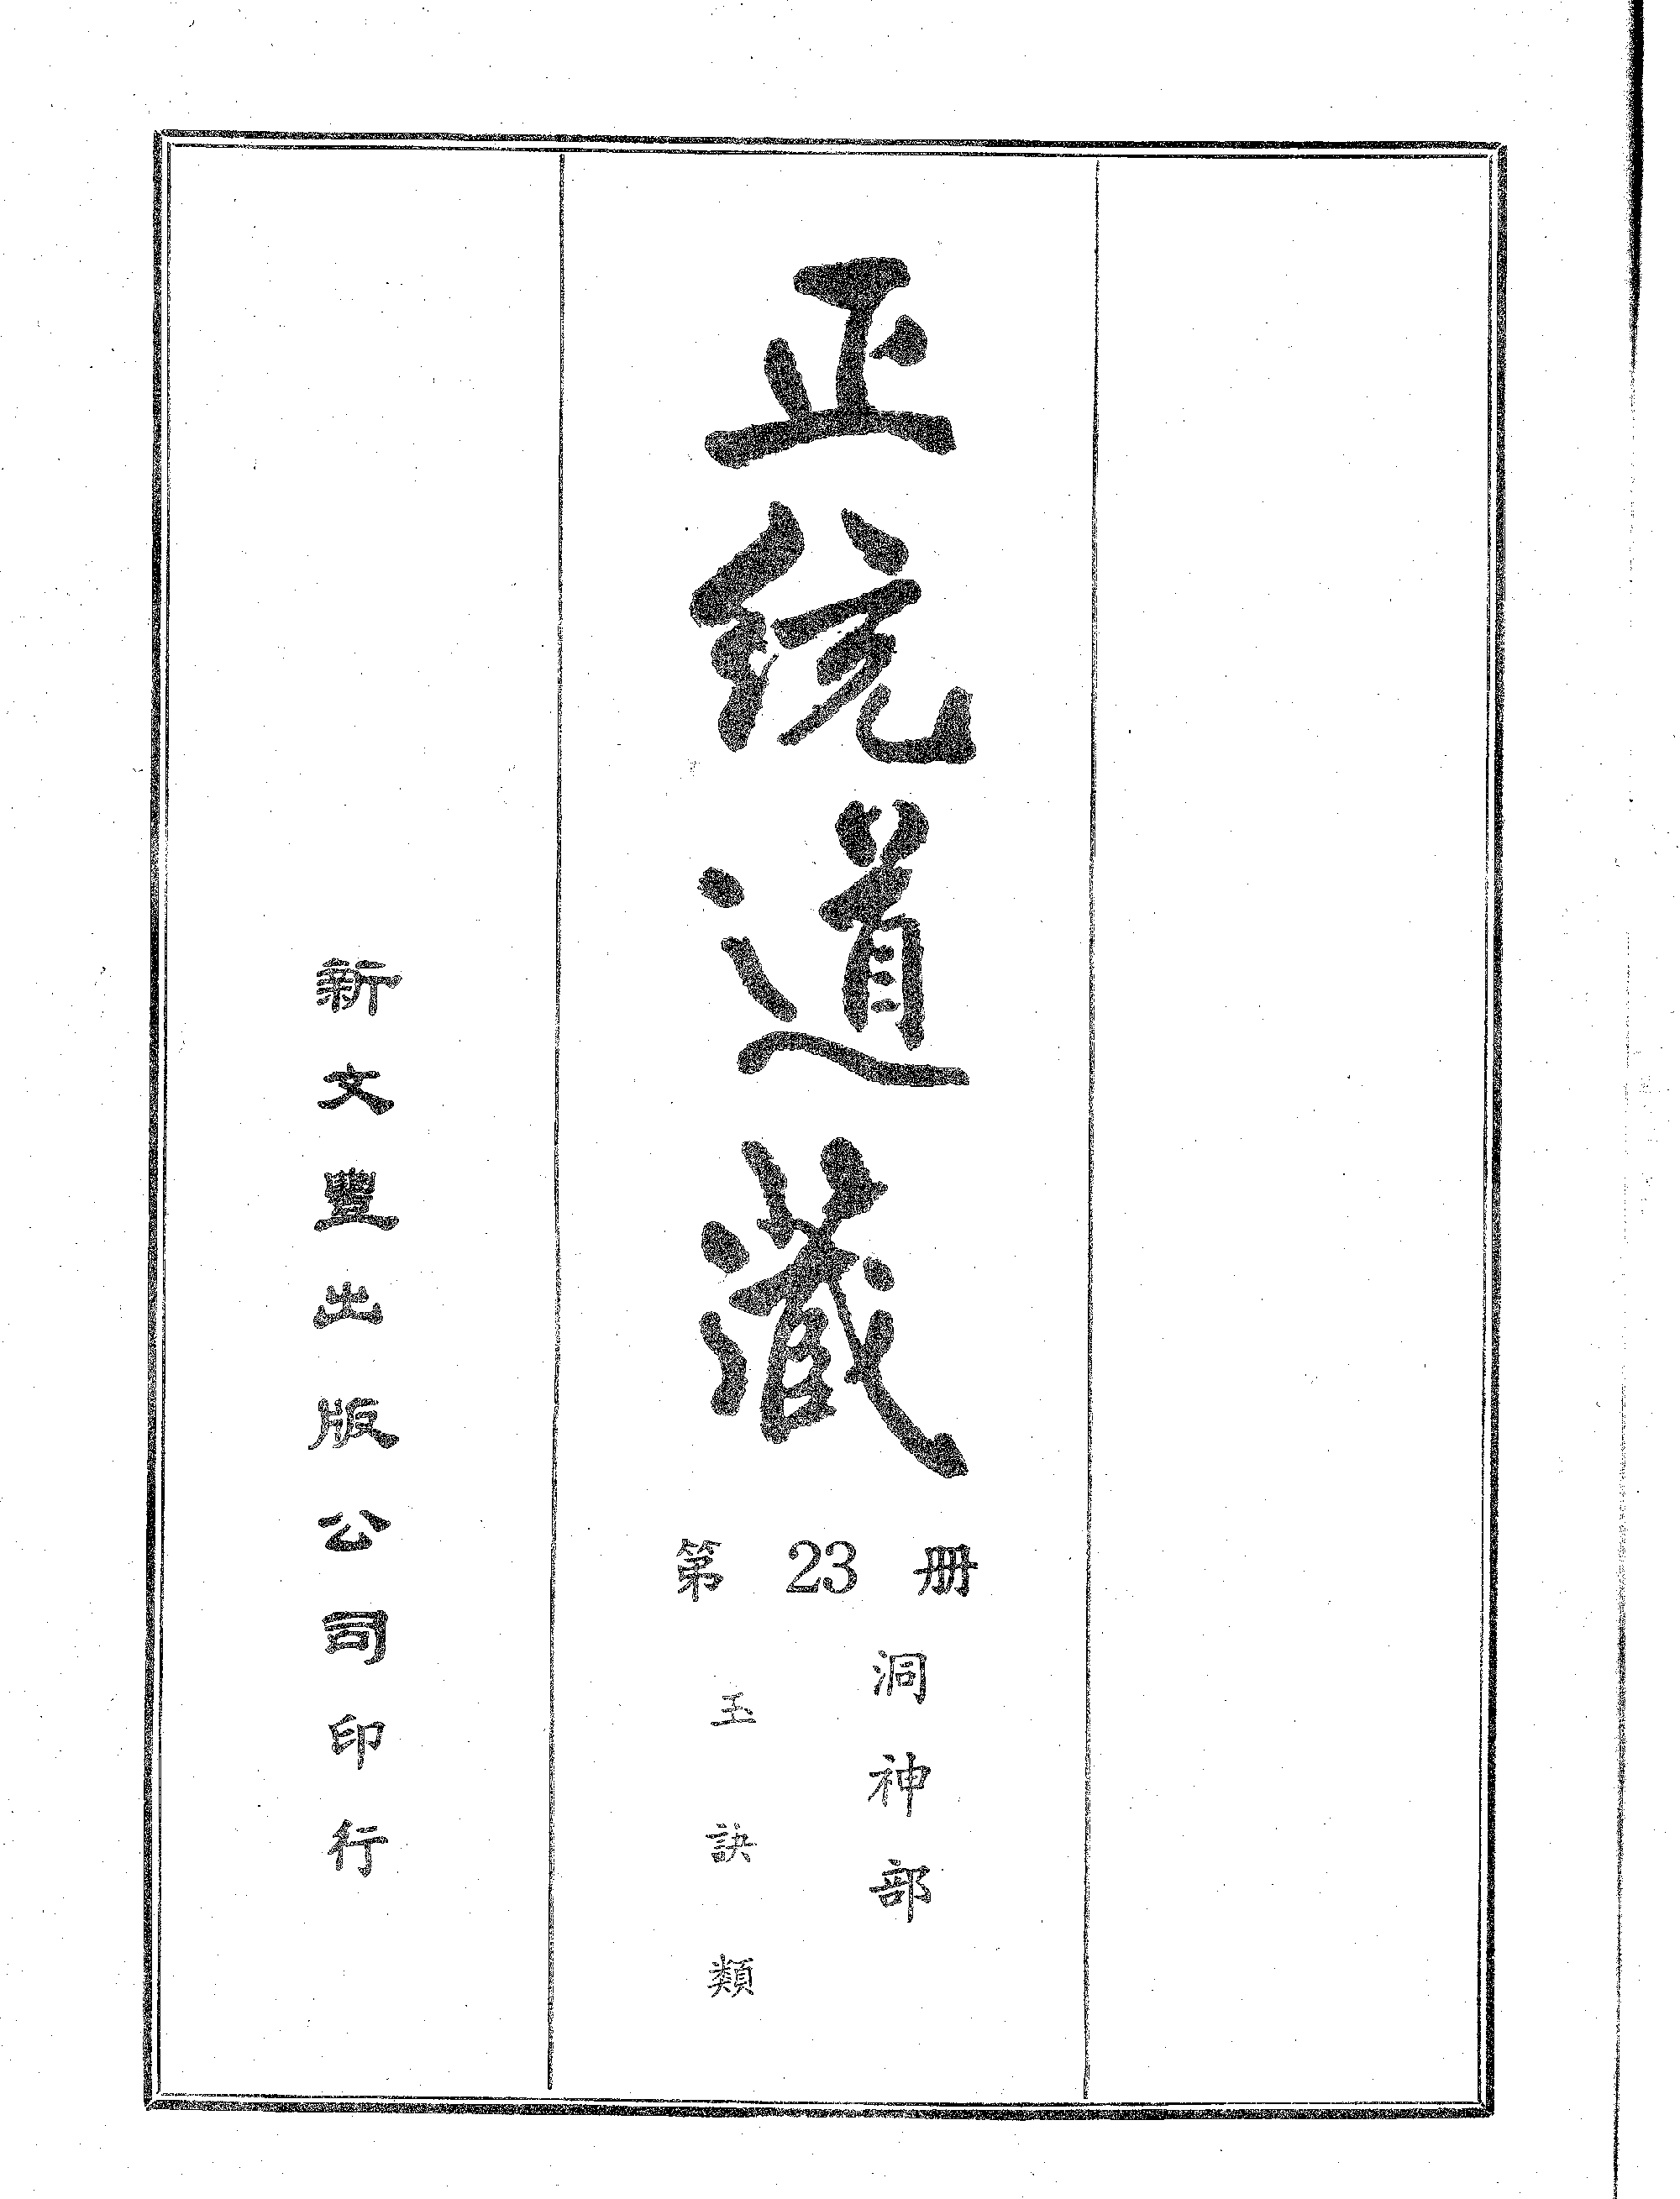 正統道藏
第23册
洞神部
玉訣類
新文豐出版公司印行